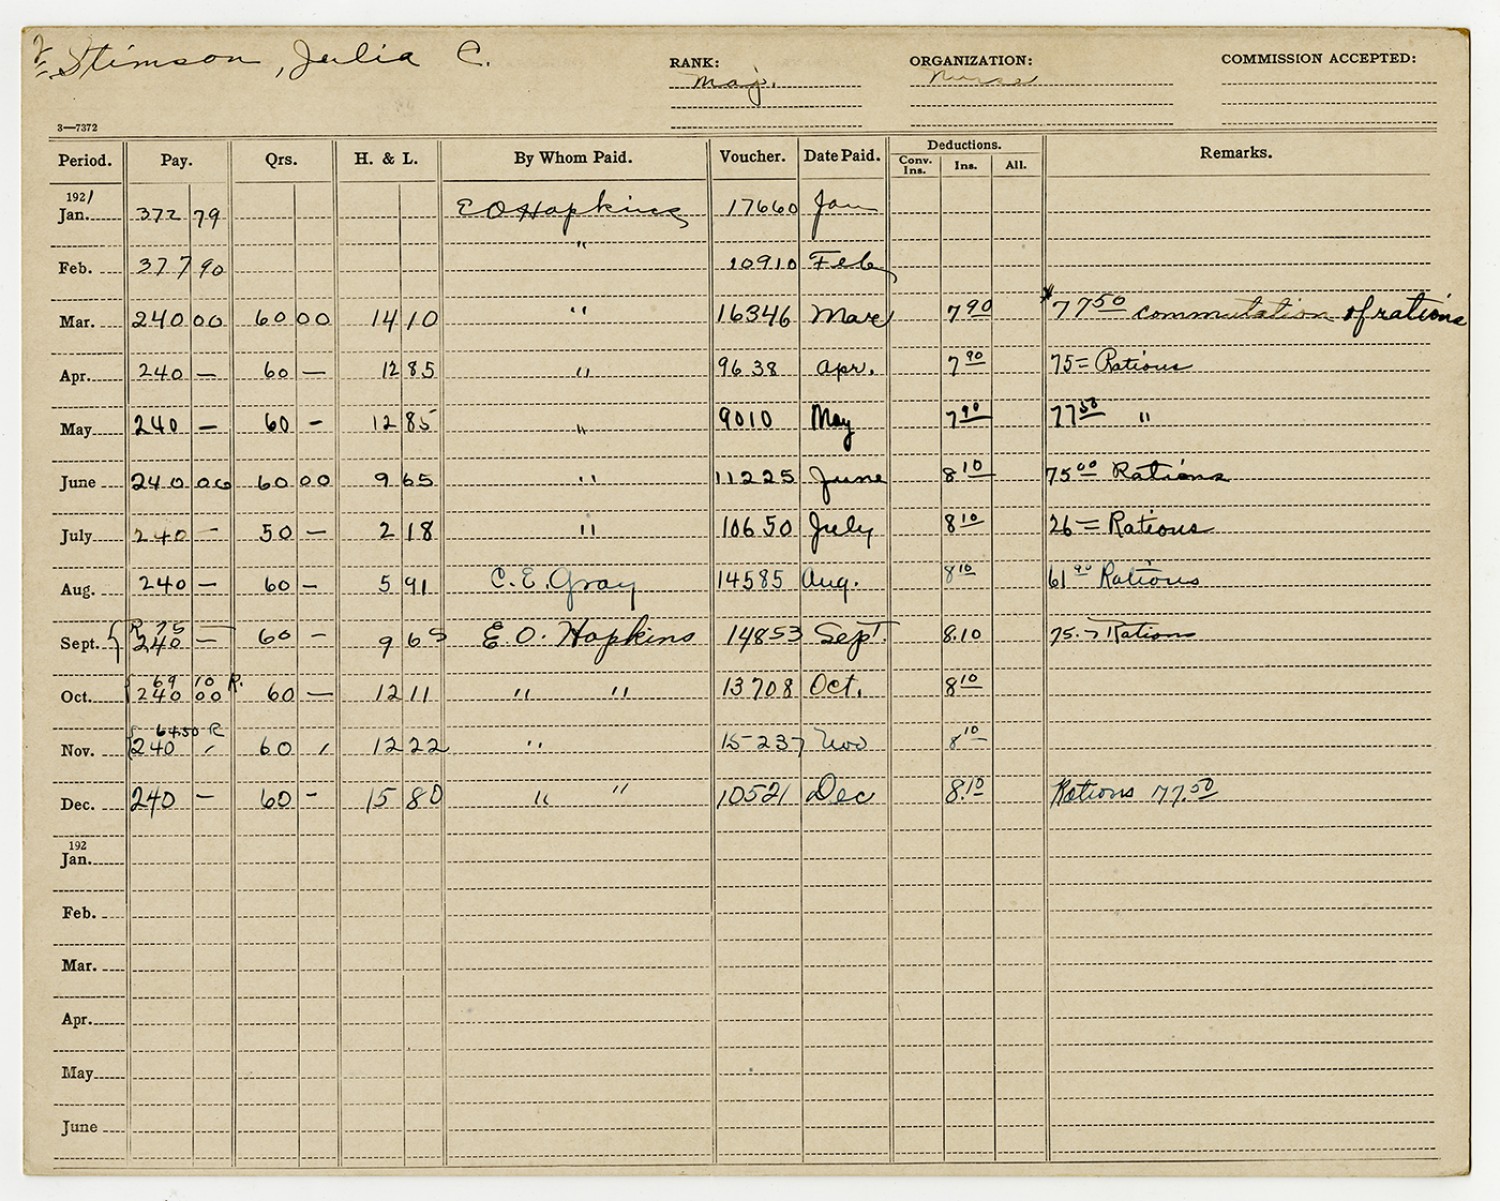 Stimson, Julia C.
RANK: Maj.
ORGANIZATION: Nurse
COMMISSION ACCEPTED:
3—7372
Period. Pay. Qrs. H. & L. By Whom Paid. Voucher. Date Paid. Deductions. Conv. Ins. Ins. All. Remarks.
1921
Jan. 372 79 E O Hopkins 17660 Jan
Feb. 377 90 " 10910 Feb
Mar. 240 00 60 00 14 10 " 16346 Mar 7 90 77 50 commutation of rations
Apr. 240 — 60 — 12 85 " 9638 Apr. 7 90 75 = Rations
May 240 — 60 - 12 85 " 9010 May 7 90 77 50 "
June 240 00 60 00 9 65 " 11225 June 8 10 75 00 Rations
July 240 — 50 — 2 18 " 10650 July 8 10 26 = Rations
Aug. 240 — 60 - 5 91 C. E. Gray 14585 Aug. 8 10 61 90 Rations
R 75 —
Sept. 240 — 60 - 9 65 E. O. Hopkins 14853 Sept. 8.10 75.- Rations
69 10 R.
Oct. 240 00 60 — 12 11 " " 13708 Oct. 8 10
64.50 R
Nov. 240 - 60 - 12 22 " 15237 Nov 8 10
Dec. 240 — 60 - 15 80 " " 10521 Dec 8.10 Rations 77.50
192
Jan.
Feb.
Mar.
Apr.
May
June